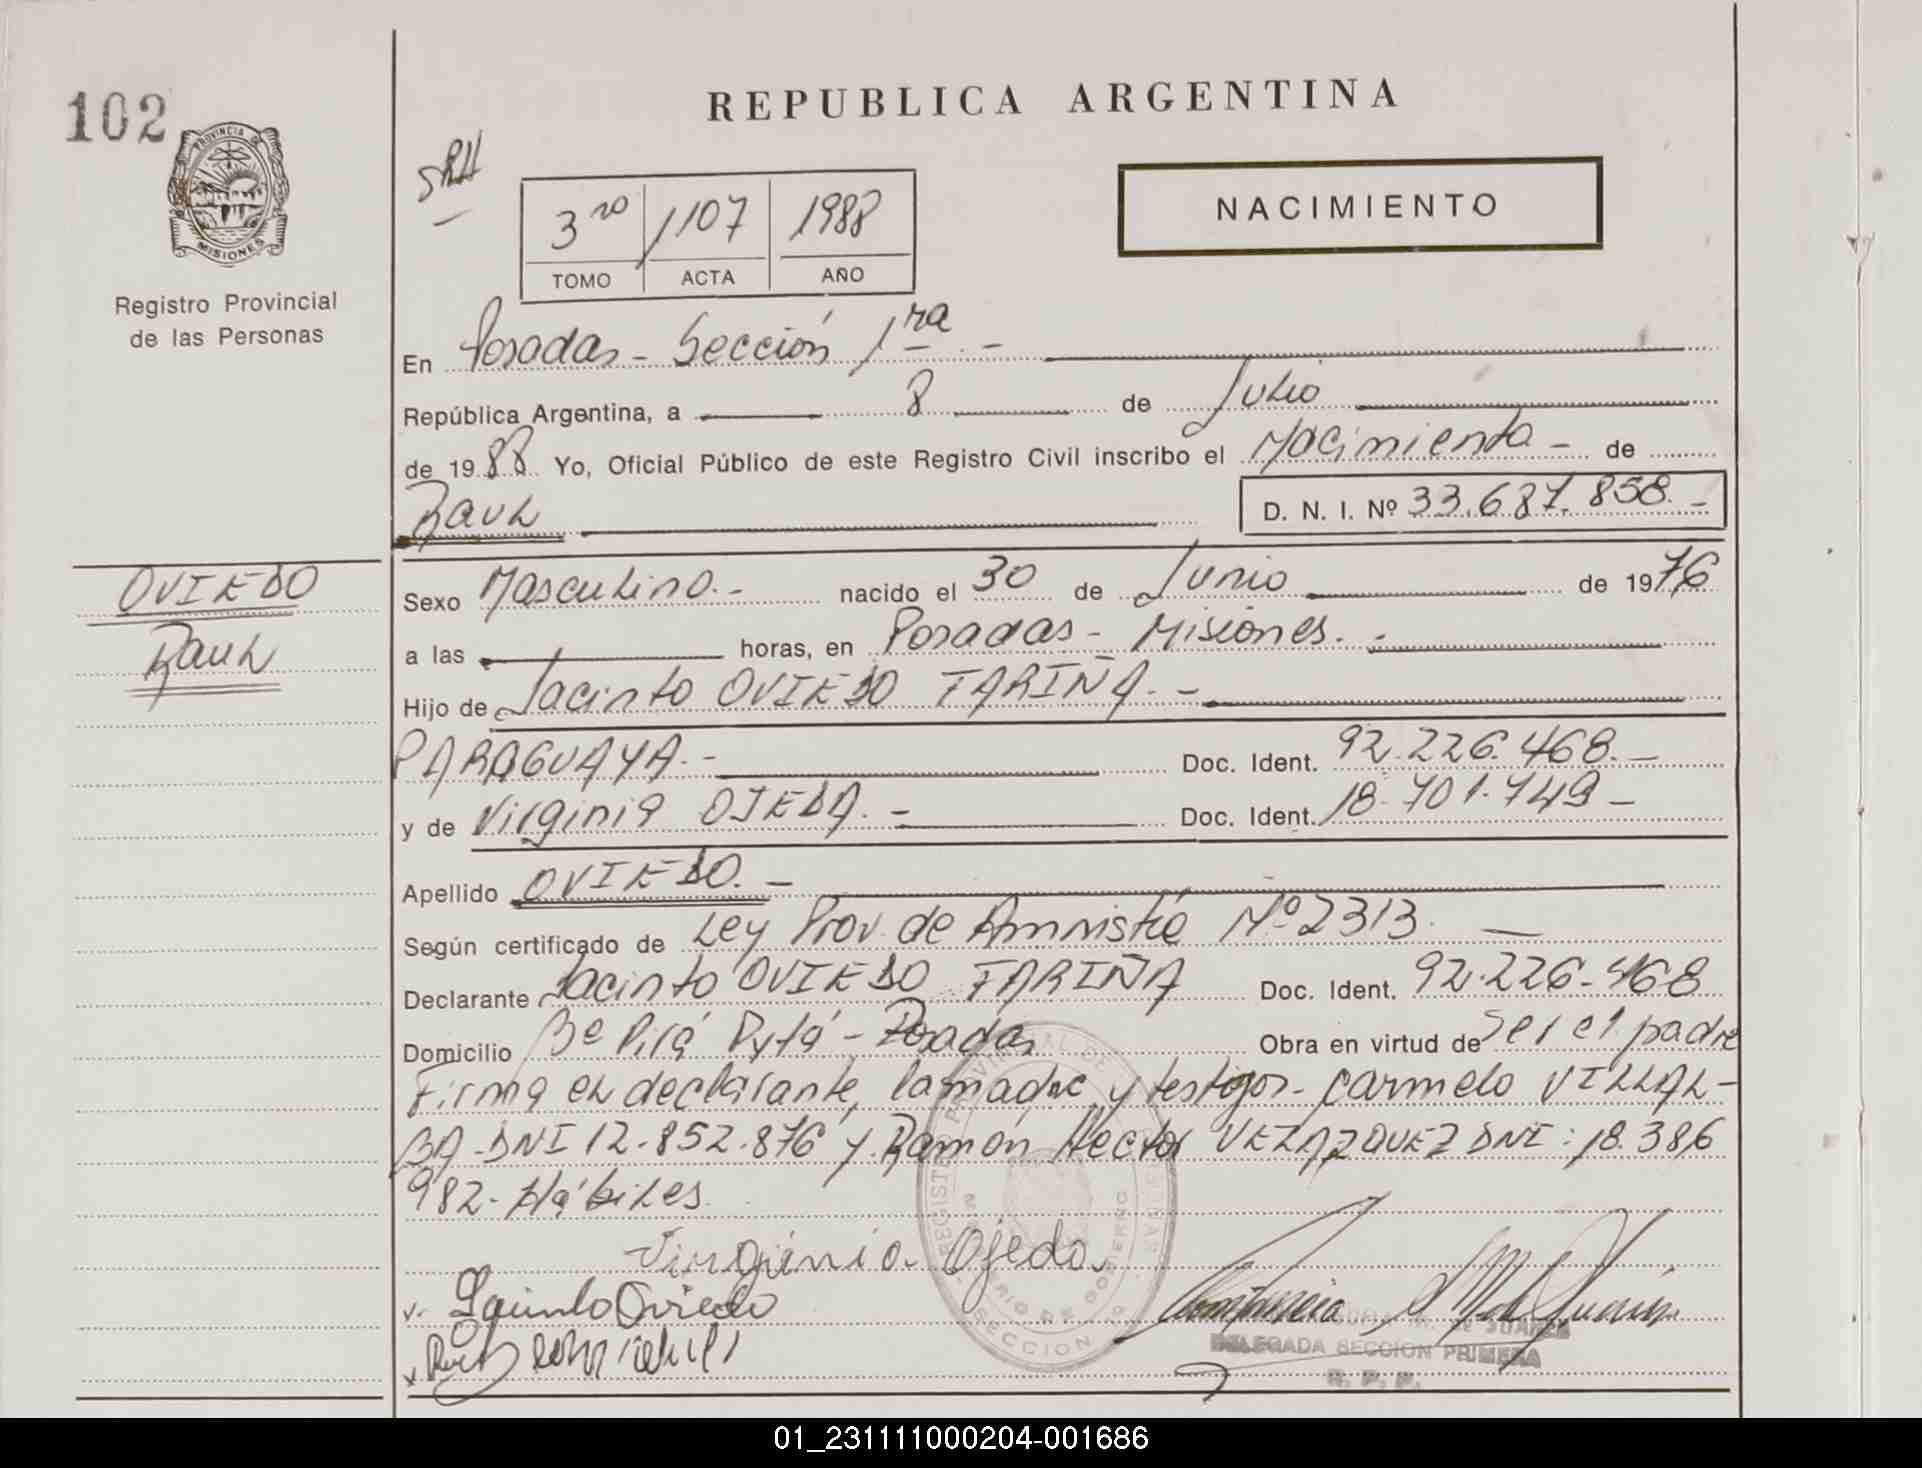 102
PROVINCIA DE
MISIONES
Registro Provincial
de las Personas
OVIEDO
Raul
REPUBLICA ARGENTINA
SRH
3ro 1107 1988
TOMO ACTA AÑO
NACIMIENTO
En Posadas - Sección 1ra. -
República Argentina, a 8 de Julio
de 1988 Yo, Oficial Público de este Registro Civil inscribo el Nacimiento - de
Raul D. N. I. Nº 33.687.858. -
Sexo Masculino. - nacido el 30 de Junio de 1976
a las horas, en Posadas - Misiones. -
Hijo de Jacinto OVIEDO FARIÑA. -
PARAGUAYA. - Doc. Ident. 92.226.468. -
y de Virginia OJEDA. - Doc. Ident. 18.701.749 -
Apellido OVIEDO. -
Según certificado de Ley Prov. de Amnistía Nº 2313. -
Declarante Jacinto OVIEDO FARIÑA Doc. Ident. 92.226.468
Domicilio Bº Pirá Pytá - Posadas Obra en virtud de ser el padre
Firma el declarante, la madre y testigos - Carmelo VILLAL-
BA - DNI 12.852.876 y Ramón Hector VELAZQUEZ DNI: 18.386
982 - Hábiles.
Virginia Ojeda
Jacinto Oviedo
REGISTRO PROVINCIAL DE
DE GOBIERNO
SECCION
DE SUAREZ
DELEGADA SECCION PRIMERA
R. P. P.
01_231111000204-001686